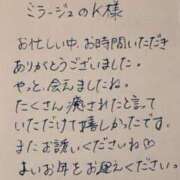 ミラージュのK様
お忙しい中、お時間いただき
ありがとうございました。
やっと、会えましたね。
たくさん癒されたと言って
いただけて嬉しかったです。
またお誘いくださいね♡
よいお年をお迎えください。